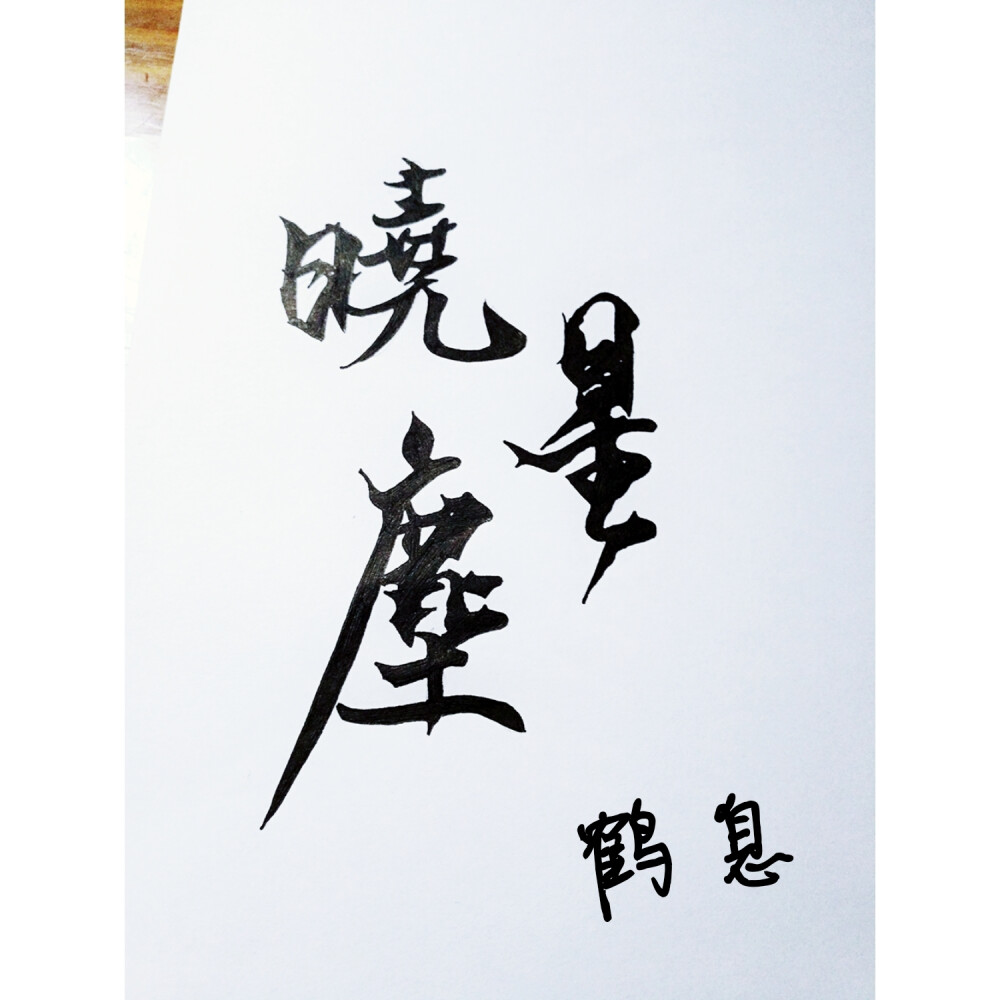 曉
星
塵
鹤 息